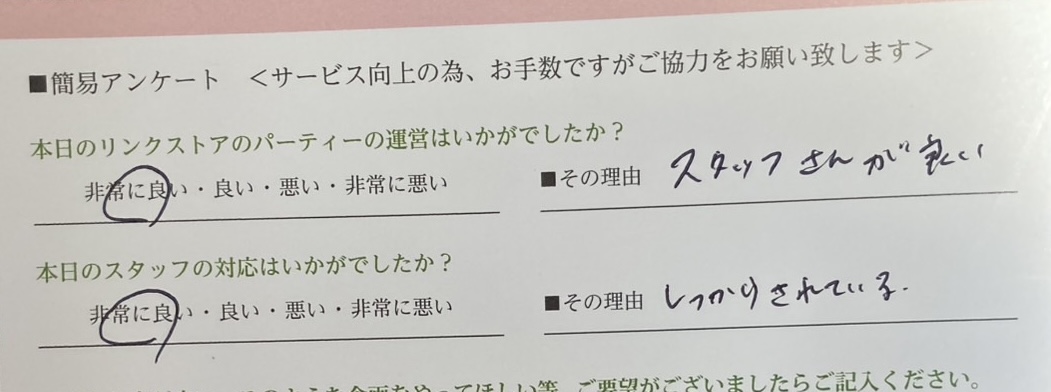 ■簡易アンケート　＜サービス向上の為、お手数ですがご協力をお願い致します＞
本日のリンクストアのパーティーの運営はいかがでしたか？
非常に良い・良い・悪い・非常に悪い　■その理由　スタッフさんが良い
本日のスタッフの対応はいかがでしたか？
非常に良い・良い・悪い・非常に悪い　■その理由　しっかりされている.
のような企画をやってほしい等、ご要望がございましたらご記入ください。